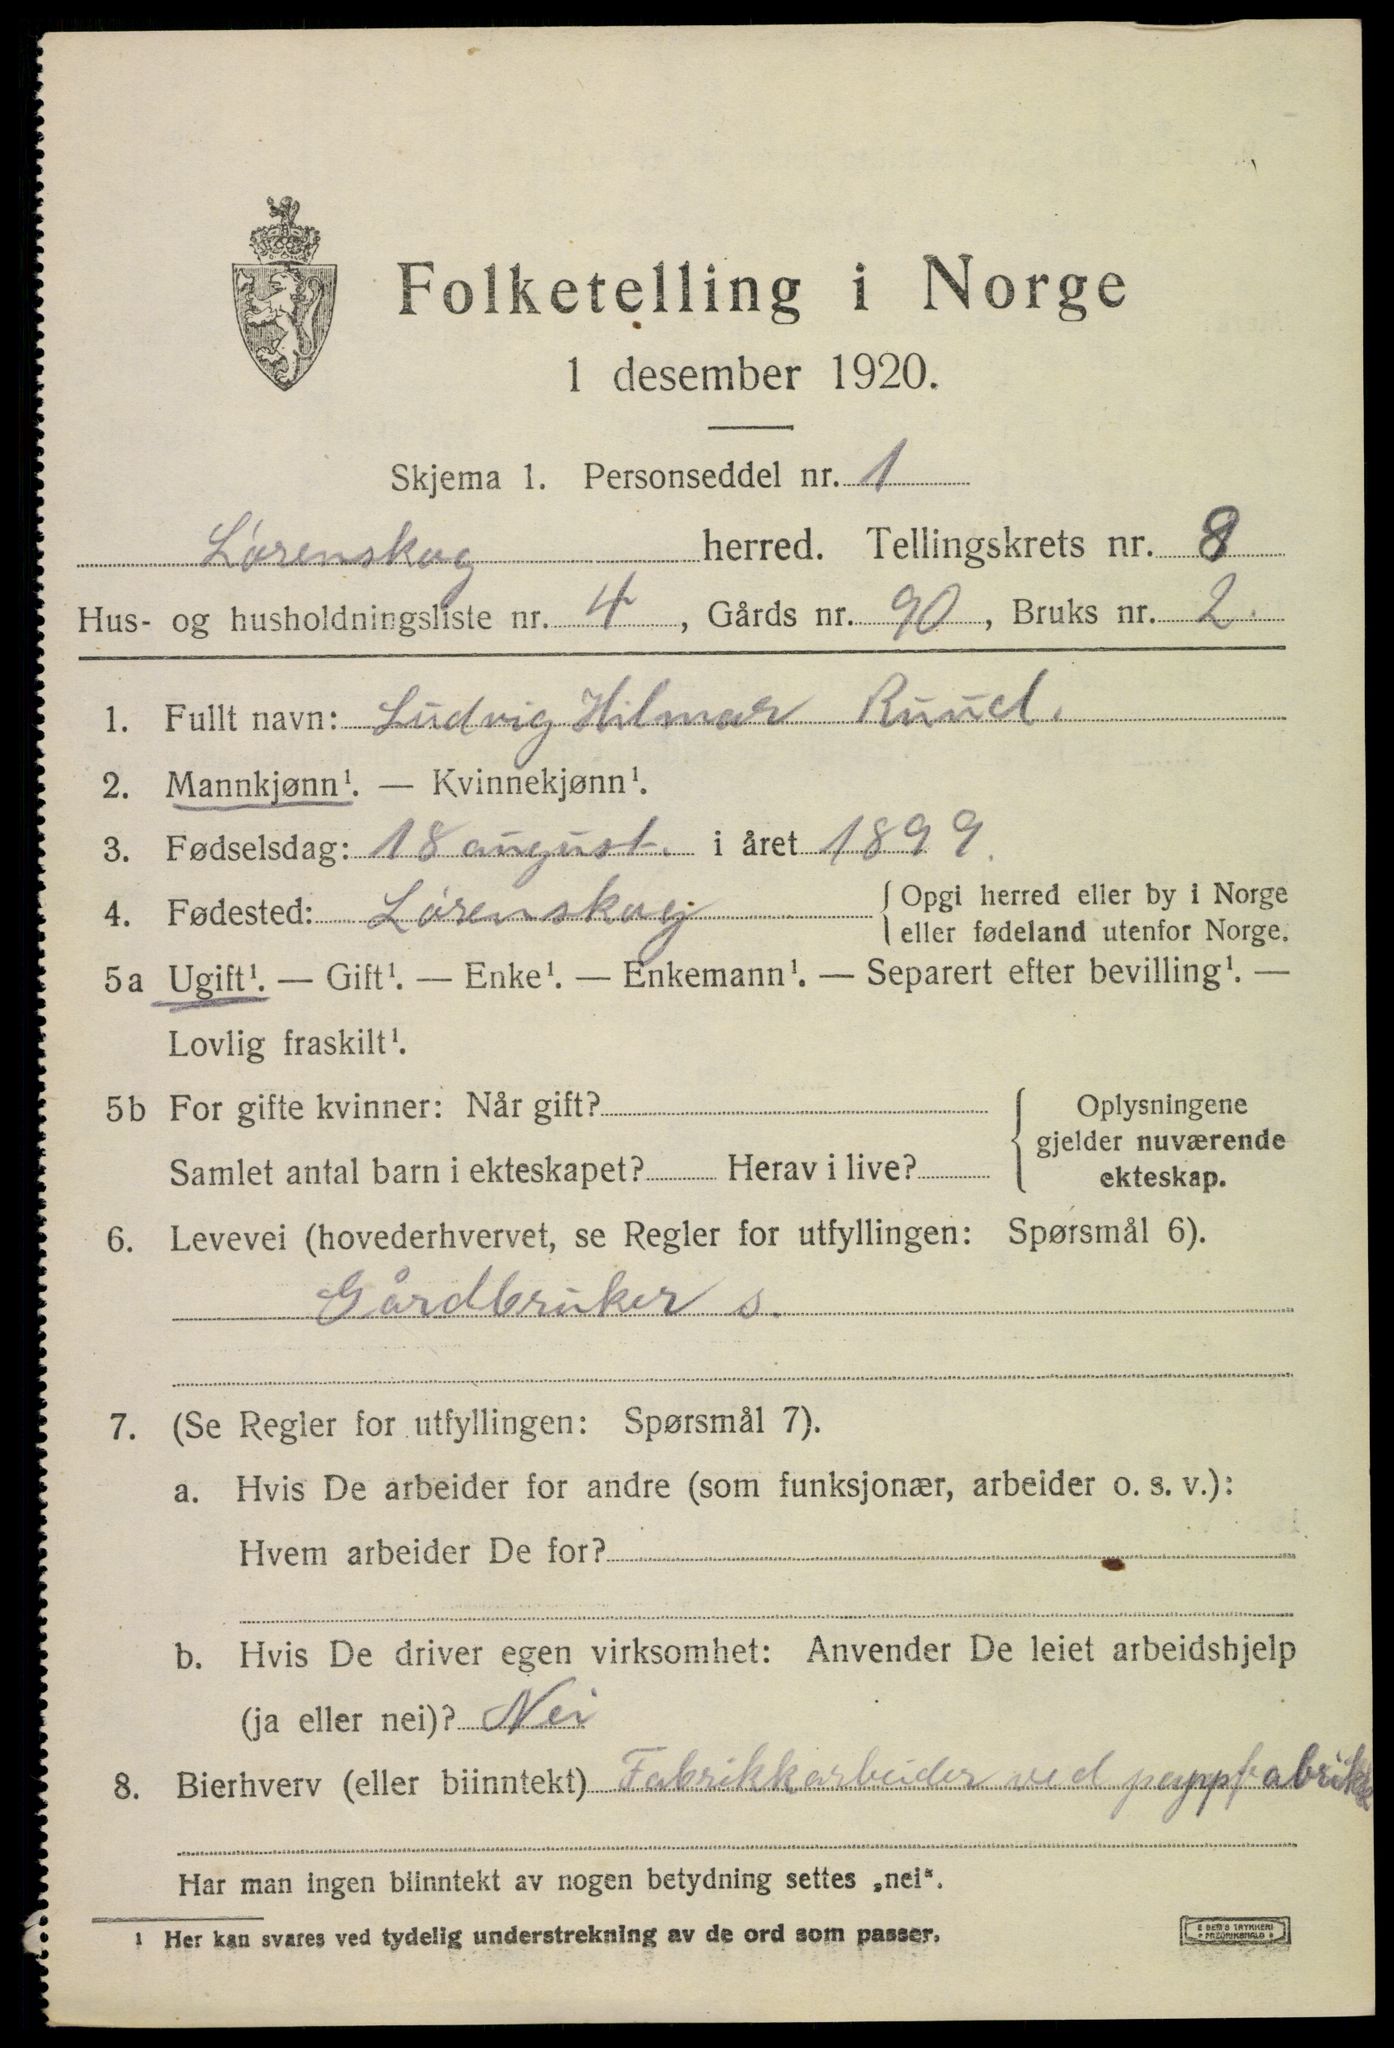 Folketelling i Norge
1 desember 1920.
Skjema 1. Personseddel nr. 1
Lørenskog herred. Tellingskrets nr. 8
Hus- og husholdningsliste nr. 4, Gårds nr. 90, Bruks nr. 2.
1. Fullt navn: Ludvig Hilmar Ruud.
2. Mannkjønn¹. — Kvinnekjønn¹.
3. Fødselsdag: 18 august. i året 1899.
4. Fødested: Lørenskog { Opgi herred eller by i Norge
eller fødeland utenfor Norge.
5a Ugift¹. — Gift¹. — Enke¹. — Enkemann¹. — Separert efter bevilling¹. —
Lovlig fraskilt¹.
5b For gifte kvinner: Når gift? { Oplysningene
gjelder nuværende
Samlet antal barn i ekteskapet? Herav i live? ekteskap.
6. Levevei (hovederhvervet, se Regler for utfyllingen: Spørsmål 6).
Gårdbruker s.
7. (Se Regler for utfyllingen: Spørsmål 7).
a. Hvis De arbeider for andre (som funksjonær, arbeider o. s. v.):
Hvem arbeider De for?
b. Hvis De driver egen virksomhet: Anvender De leiet arbeidshjelp
(ja eller nei)? Nei
8. Bierhverv (eller biinntekt) Fabrikkarbeider ved pappfabrikk
Har man ingen biinntekt av nogen betydning settes „nei".
¹ Her kan svares ved tydelig understrekning av de ord som passer.